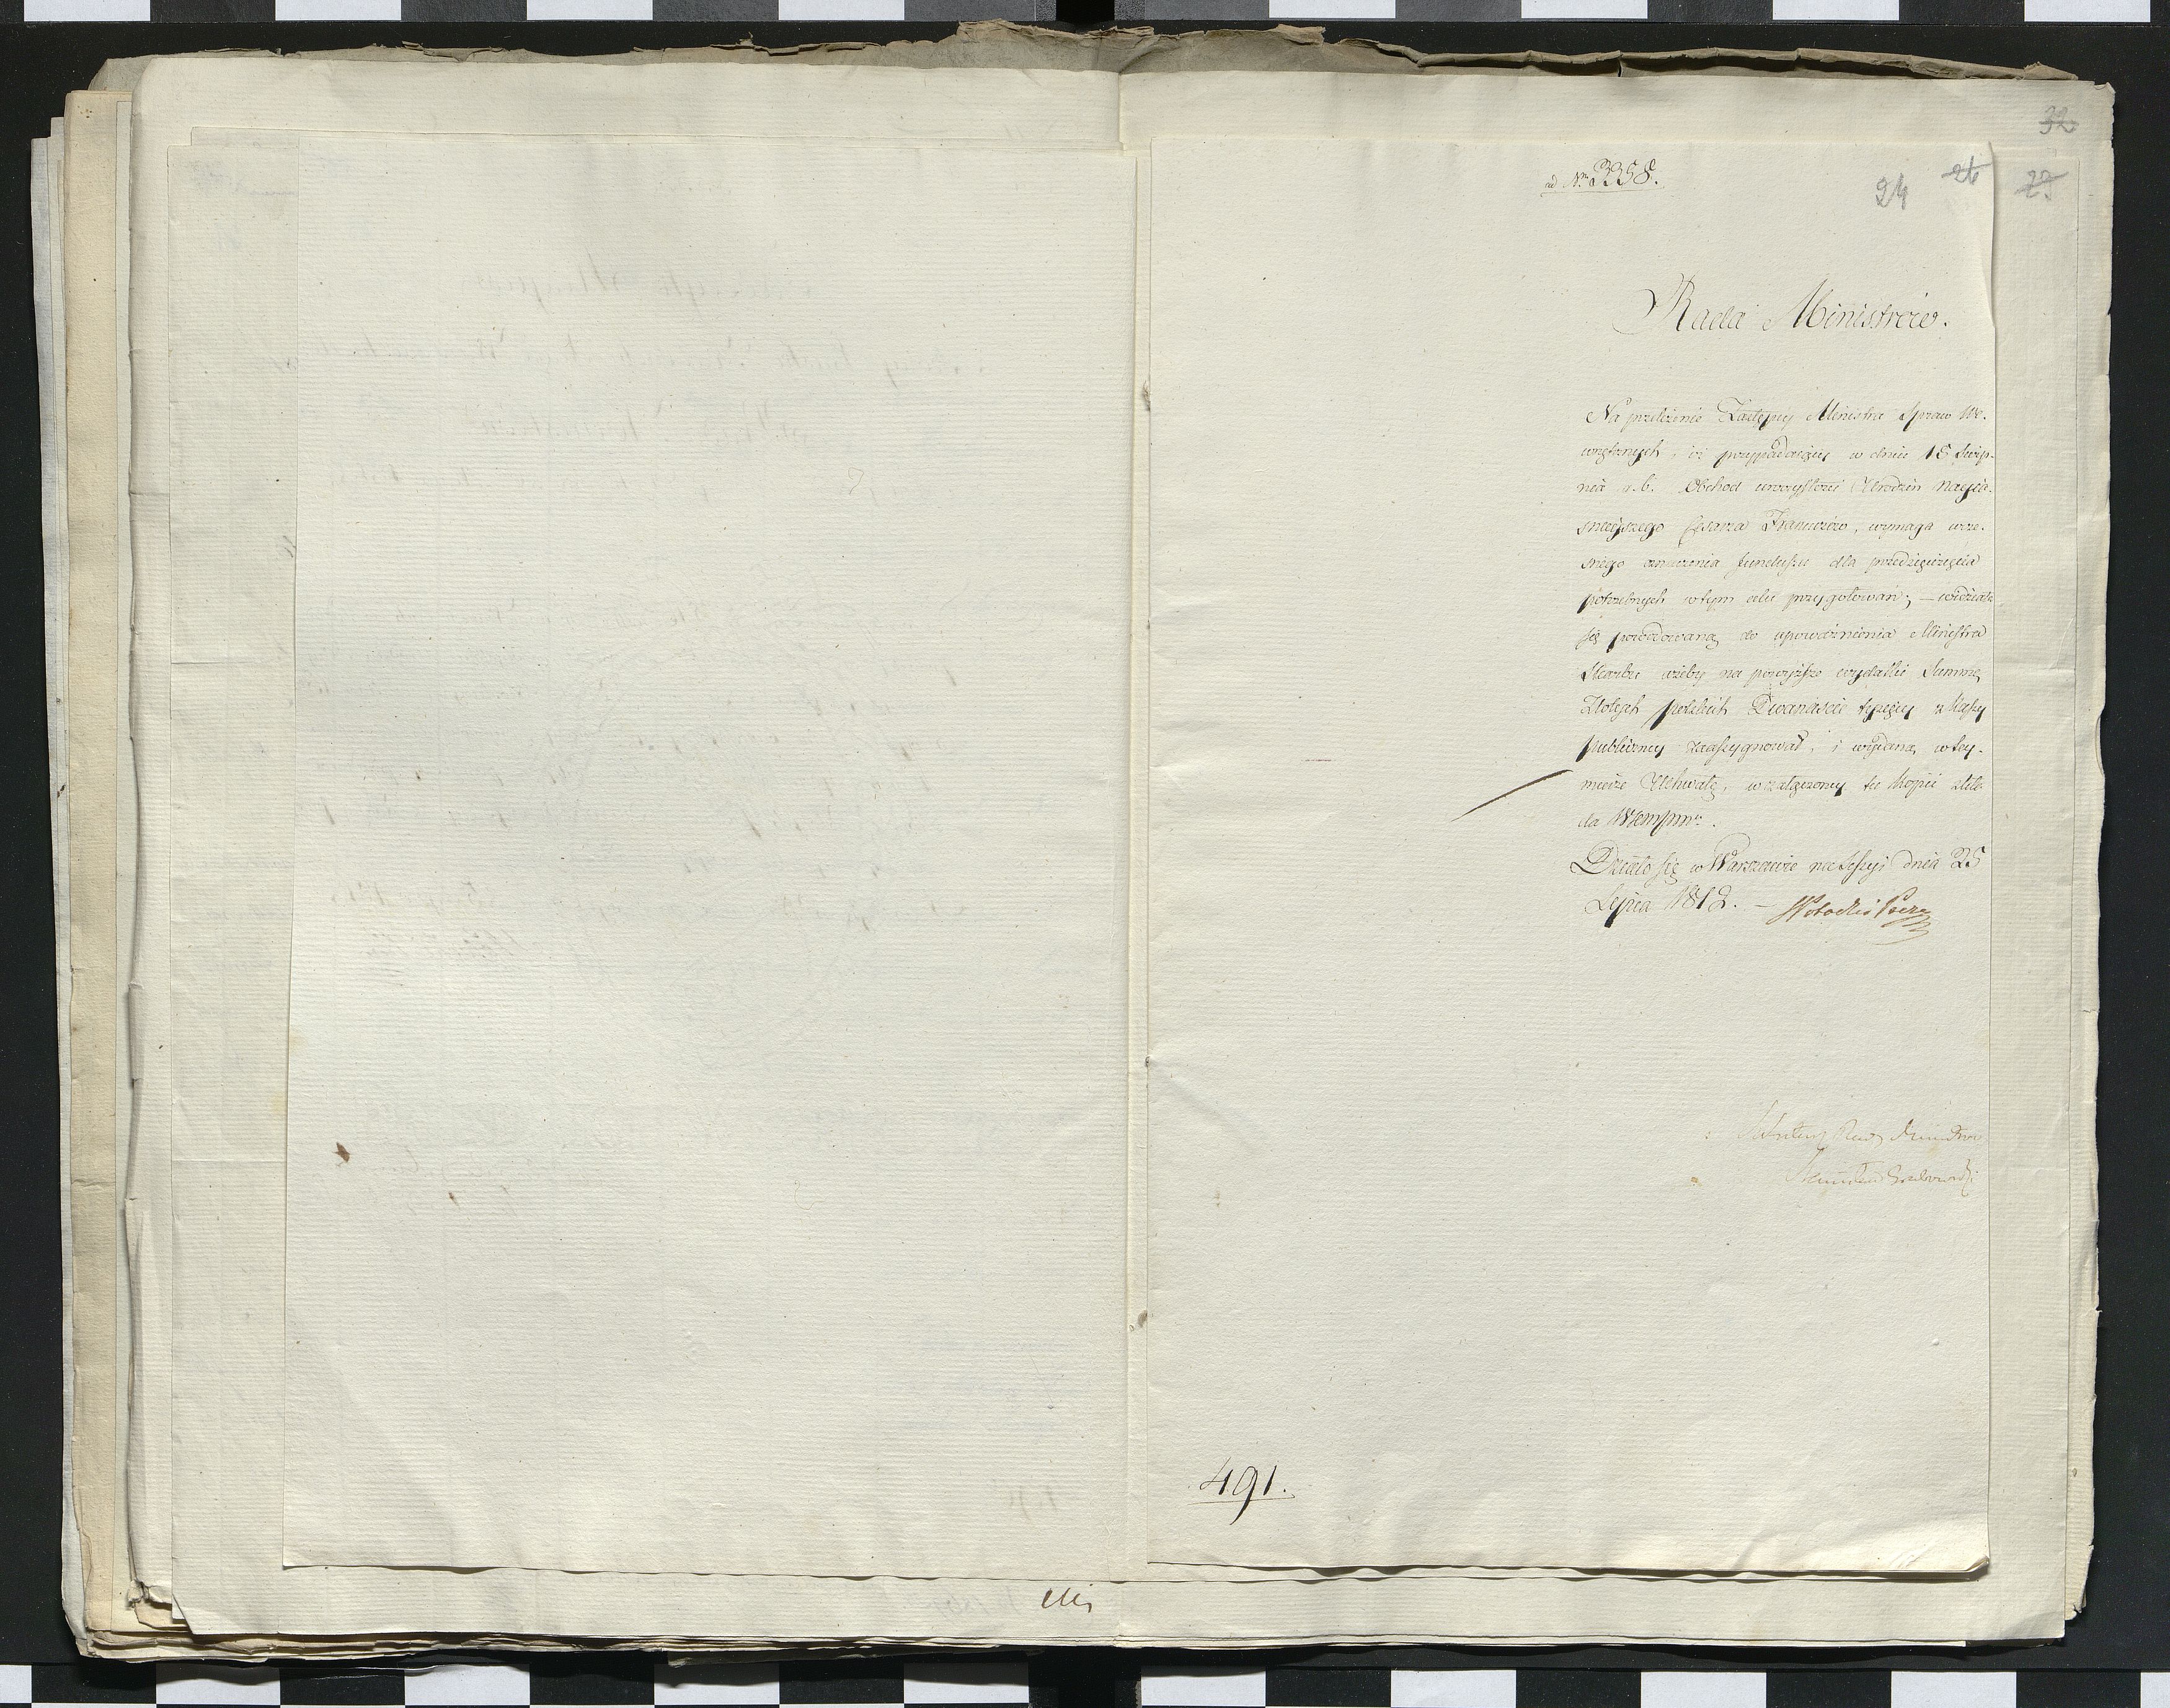 32
ad Nr 3358.
24 26 27
Rada Ministrów.
Na przełożenie Zastępcy Ministra Spraw We-
wnętrznych, iż przypadaiący w dniu 15 Sierp-
nia r. b. Obchod uroczystości Urodzin Nayia-
snieyszego Cesarza Francuzów, wymaga wcze-
snego oznaczenia funduszu dla przedsięwzięcia
potrzebnych w tym celu przygotowań; – widziała
się powodowaną do upoważnienia Ministra
Skarbu ażeby na powyższe wydatki Summę
Złotych polskich Dwanaście tysięcy z Kassy
publiczney zaassygnował, i wydaną w tey-
mierze Uchwałę, w załączoney tu Kopii
da
Działo się w Warszawie na Sessyi dnia 25
Lipca 1812. –
Sekretarz Rady Ministrow
Stanisław Grabowski
491.